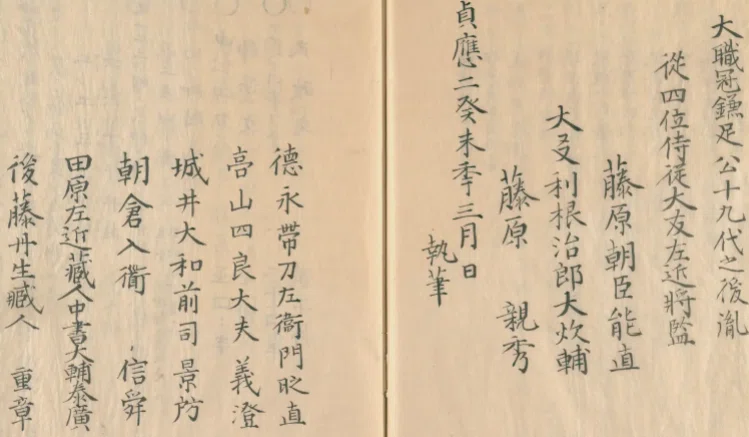 大職冠鎌足公十九代之後胤
從四位侍從大友左近將監
藤原朝臣能直
大友利根治郎大炊輔
藤原 親秀
貞應二癸未季三月日
執筆
德永帶刀左衛門 直
高山四良大夫義澄
城井大和前司景防
朝倉入衛 信舜
田原左近藏人中書大輔泰廣
後藤丹生藏人 重章